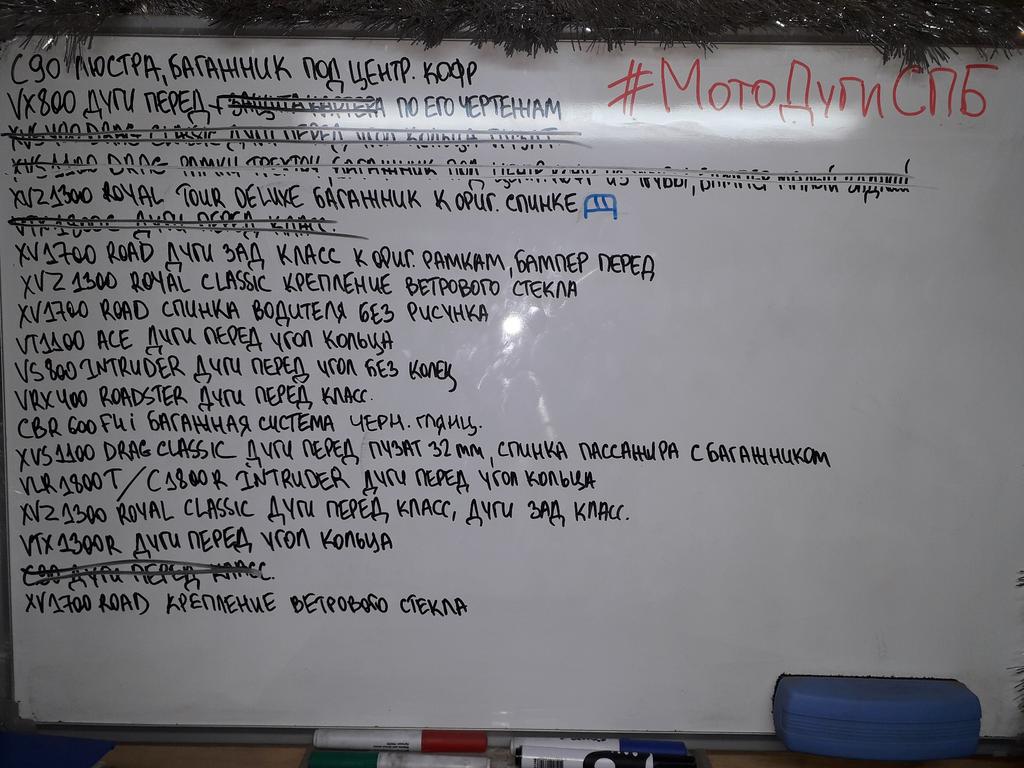 С90 ЛЮСТРА, БАГАЖНИК ПОД ЦЕНТР. КОФР
#МотоДугиСПБ
VX800 ДУГИ ПЕРЕД + ЗАЩИТА КАРТЕРА ПО ЕГО ЧЕРТЕЖАМ
XVS 400 DRAG CLASSIC ДУГИ ПЕРЕД УГОЛ КОЛЬЦА
XVS 1100 DRAG РАМКИ БАГАЖНИК ПОД ЦЕНТР
XVZ1300 ROYAL TOUR DELUXE БАГАЖНИК К ОРИГ. СПИНКЕ
VTX1800C ДУГИ ПЕРЕД КЛАСС.
XV1700 ROAD ДУГИ ЗАД КЛАСС К ОРИГ. РАМКАМ, БАМПЕР ПЕРЕД
XVZ 1300 ROYAL CLASSIC КРЕПЛЕНИЕ ВЕТРОВОГО СТЕКЛА
XV1700 ROAD СПИНКА ВОДИТЕЛЯ БЕЗ РИСУНКА
VT1100 ACE ДУГИ ПЕРЕД УГОЛ КОЛЬЦА
VS 800 INTRUDER ДУГИ ПЕРЕД УГОЛ БЕЗ КОЛЕЦ
VRX400 ROADSTER ДУГИ ПЕРЕД КЛАСС.
CBR 600 F4i БАГАЖНАЯ СИСТЕМА ЧЕРН. ГЛЯНЦ.
XVS1100 DRAG CLASSIC ДУГИ ПЕРЕД ПУЗАТ 32mm, СПИНКА ПАССАЖИРА С БАГАЖНИКОМ
VLR1800T / C1800R INTRUDER ДУГИ ПЕРЕД УГОЛ КОЛЬЦА
XVZ1300 ROYAL CLASSIC ДУГИ ПЕРЕД КЛАСС, ДУГИ ЗАД КЛАСС.
VTX1300R ДУГИ ПЕРЕД УГОЛ КОЛЬЦА
C90 ДУГИ ПЕРЕД КЛАСС.
XV1700 ROAD КРЕПЛЕНИЕ ВЕТРОВОГО СТЕКЛА